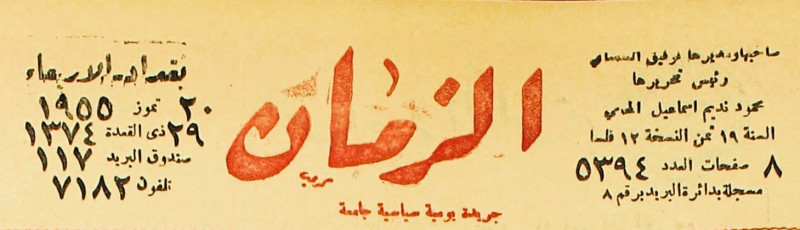 صاحبها ومديرها توفيق السمعاني
رئيس تحريرها
محمود نديم اسماعيل المحامي
السنة ١٩ ثمن النسخة ١٢ فلسا
٨ صفحات العدد ٥٣٩٤
مسجلة بدائرة البريد برقم ٨
الزمان
جريدة يومية سياسية جامعة
بغداد الاربعاء
٢٠ تموز ١٩٥٥
٢٩ ذى القعدة ١٣٧٤
صندوق البريد ١١٧
تلفون ٧١٨٢